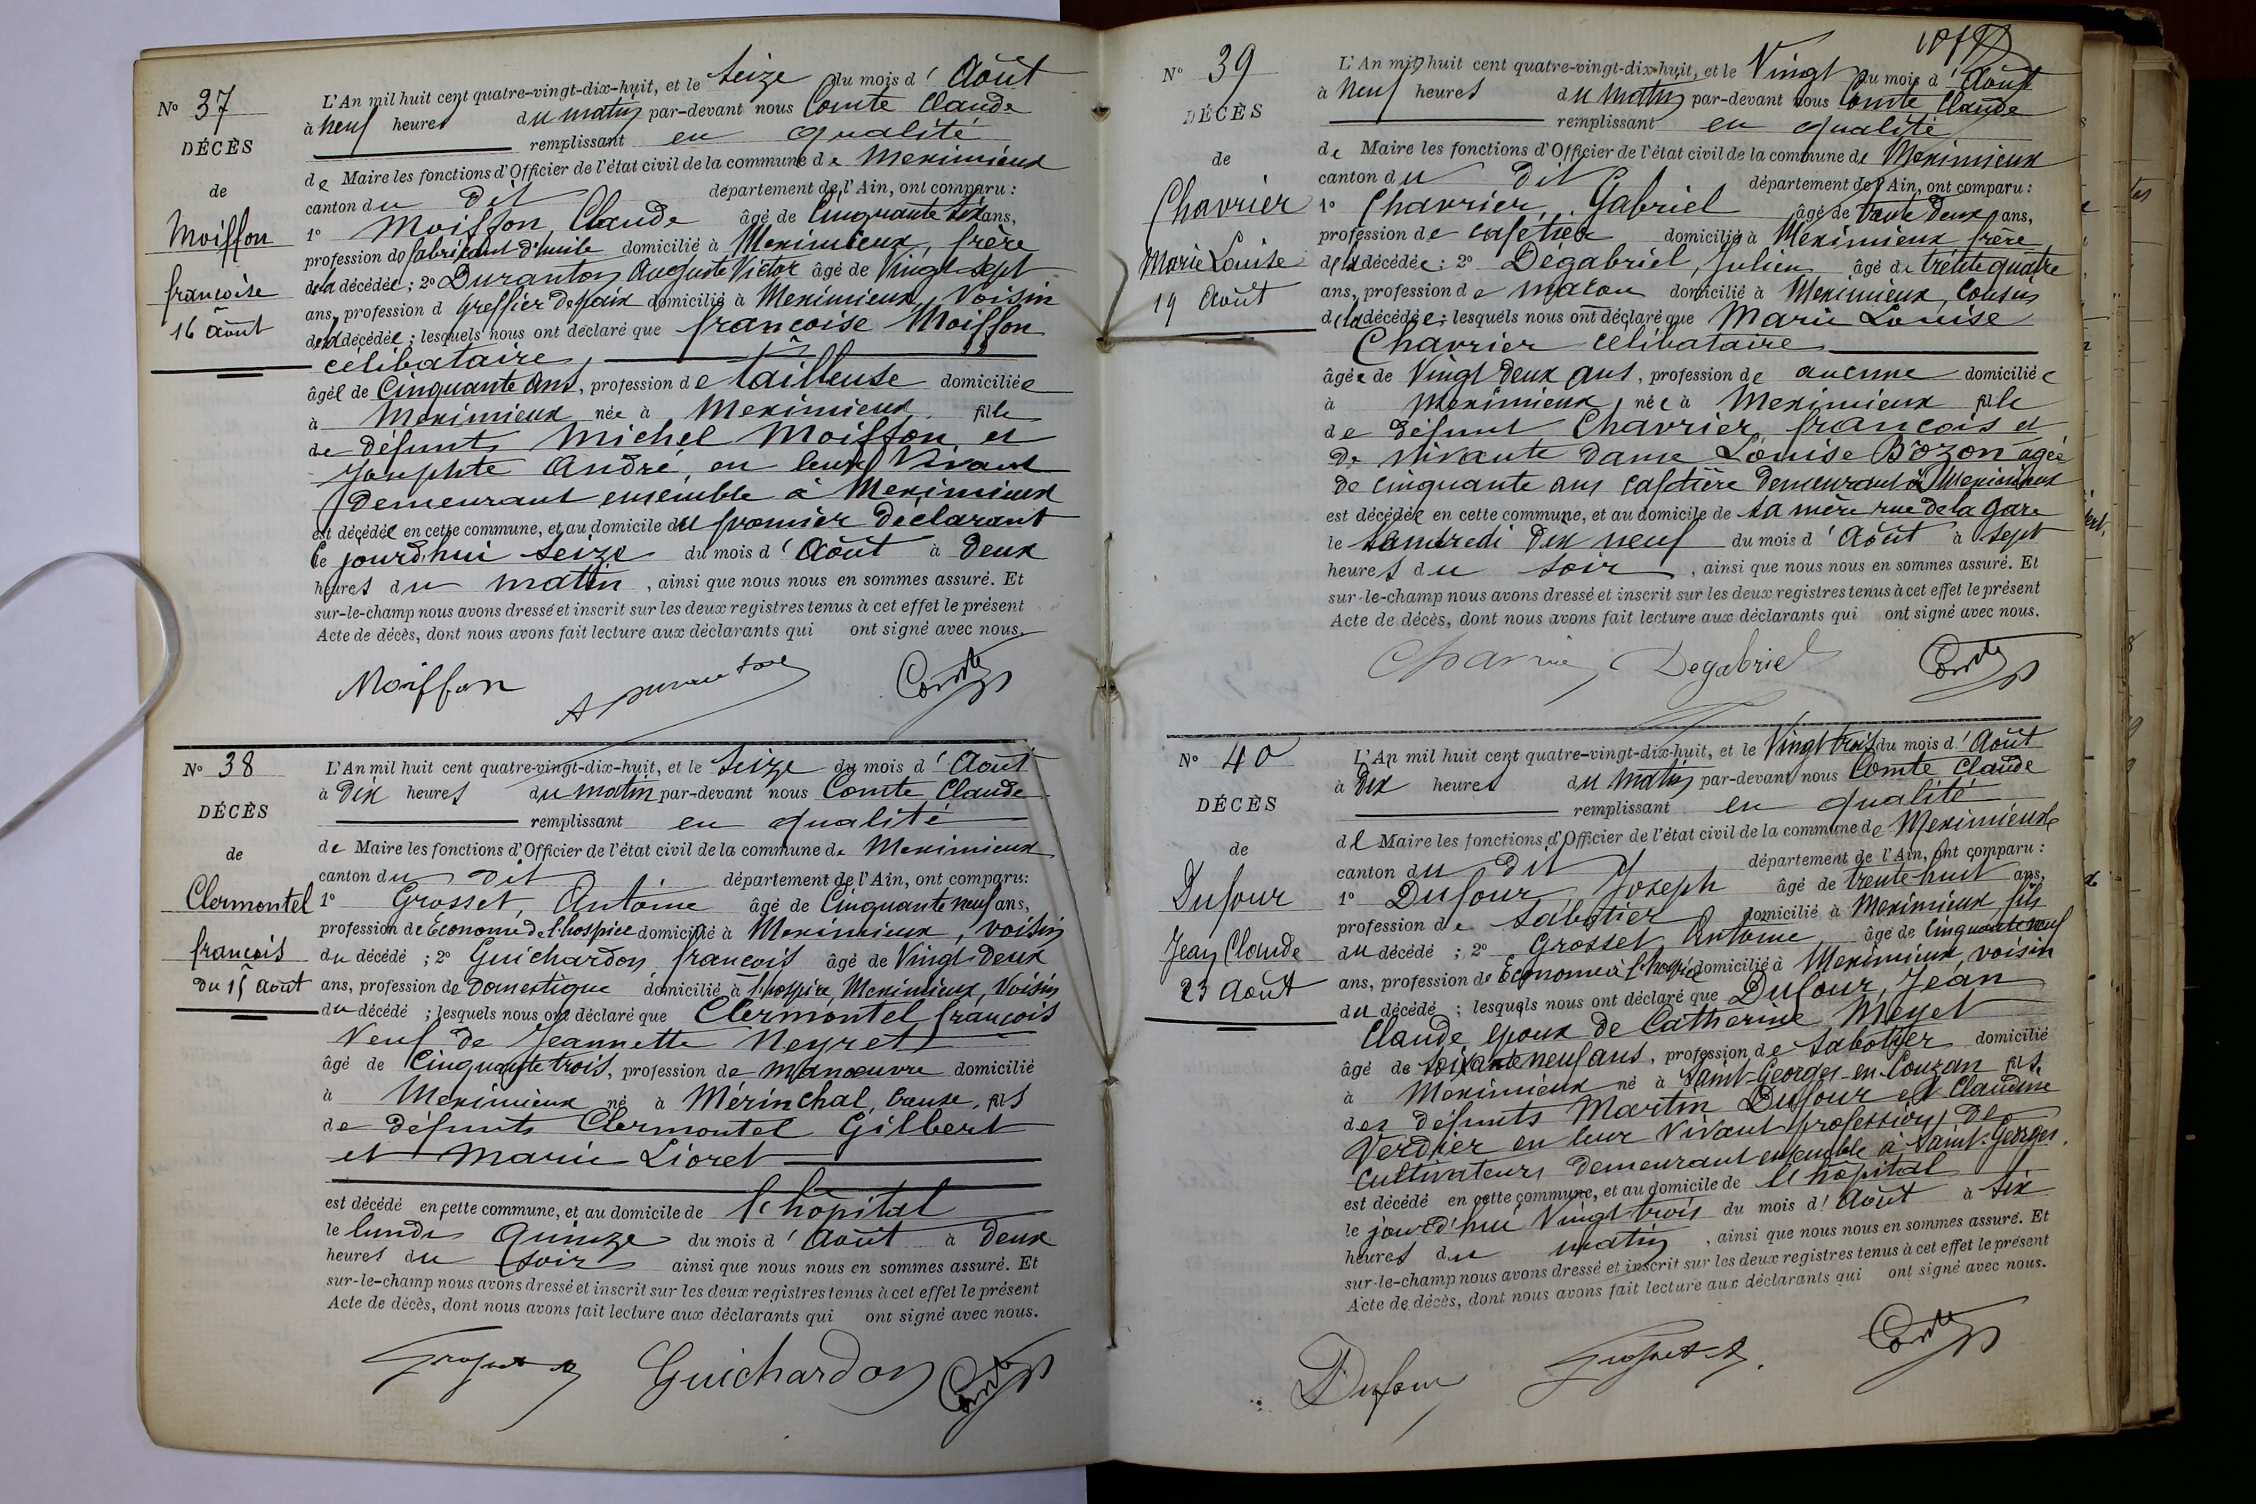 N° 37
DÉCÈS
de
Moiffon
françoise
16 Août
L'An mil huit cent quatre-vingt-dix-huit, et le seize du mois d'Août
à neuf heures du matin par-devant nous Comte Claude
remplissant en qualité
de Maire les fonctions d'Officier de l'état civil de la commune de Meximieux
canton du dit département de l'Ain, ont comparu :
1° Moiffon, Claude âgé de Cinquante six ans,
profession de fabricant d'huile domicilié à Meximieux, frère
de la décédée ; 2° Duranton Auguste Victor âgé de Vingt-sept
ans, profession d greffier de paix domicilié à Meximieux, Voisin
de la décédée ; lesquels nous ont déclaré que françoise Moiffon
célibataire,
âgée de Cinquante ans, profession de tailleuse domiciliée
à Meximieux née à Meximieux fille
de défunts Michel Moiffon et
Josephte André en leur Vivant
demeurant ensemble à Meximieux
est décédée en cette commune, et au domicile du premier déclarant
le jourd'hui seize du mois d'Août à deux
heures du matin, ainsi que nous nous en sommes assuré. Et
sur-le-champ nous avons dressé et inscrit sur les deux registres tenus à cet effet le présent
Acte de décès, dont nous avons fait lecture aux déclarants qui ont signé avec nous.
Moiffon Comte
N° 38
DÉCÈS
de
Clermontel
françois
du 15 Août
L'An mil huit cent quatre-vingt-dix-huit, et le seize du mois d'Août
à dix heures du matin par-devant nous Comte Claude
remplissant en qualité
de Maire les fonctions d'Officier de l'état civil de la commune de Meximieux
canton du dit département de l'Ain, ont comparu :
1° Grosset, Antoine âgé de Cinquante neuf ans,
profession de Économe de l'hospice domicilié à Meximieux, voisin
du décédé ; 2° Guichardon françois âgé de Vingt-deux
ans, profession de domestique domicilié à l'hospice, Meximieux, Voisin
du décédé ; lesquels nous ont déclaré que Clermontel françois
Veuf de Jeannette Neyret
âgé de Cinquante trois, profession de manœuvre domicilié
à Meximieux né à Mérinchal, Creuse, fils
de défunts Clermontel Gilbert
et Marie Lioret
est décédé en cette commune, et au domicile de l'hôpital
le lundi Quinze du mois d'Août à deux
heures du soir ainsi que nous nous en sommes assuré. Et
sur-le-champ nous avons dressé et inscrit sur les deux registres tenus à cet effet le présent
Acte de décès, dont nous avons fait lecture aux déclarants qui ont signé avec nous.
Grosset A Guichardon Comte
N° 39
DÉCÈS
de
Chavrier
Marie Louise
19 Août
L'An mil huit cent quatre-vingt-dix-huit, et le Vingt du mois d'Août
à neuf heures du matin par-devant nous Comte Claude
remplissant en qualité
de Maire les fonctions d'Officier de l'état civil de la commune de Meximieux
canton du dit département de l'Ain, ont comparu :
1° Chavrier, Gabriel âgé de trente deux ans,
profession de cafetier domicilié à Meximieux frère
de la décédée ; 2° Dégabriel, Julien âgé de trente quatre
ans, profession de maçon domicilié à Meximieux, Cousin
de la décédée ; lesquels nous ont déclaré que Marie Louise
Chavrier célibataire
âgée de Vingt deux ans, profession de aucune domiciliée
à Meximieux, née à Meximieux fille
de défunt Chavrier, françois et
de vivante dame Louise Bozon âgée
de cinquante ans cafetière demeurant à Meximieux
est décédée en cette commune, et au domicile de sa mère rue de la gare
le samedi dix neuf du mois d'Août à sept
heures du soir, ainsi que nous nous en sommes assuré. Et
sur-le-champ nous avons dressé et inscrit sur les deux registres tenus à cet effet le présent
Acte de décès, dont nous avons fait lecture aux déclarants qui ont signé avec nous.
Chavrier Degabriel Comte
N° 40
DÉCÈS
de
Dufour
Jean Claude
23 Août
L'An mil huit cent quatre-vingt-dix-huit, et le Vingt trois du mois d'Août
à dix heures du matin par-devant nous Comte Claude
remplissant en qualité
de Maire les fonctions d'Officier de l'état civil de la commune de Meximieux
canton du dit département de l'Ain, ont comparu :
1° Dufour, Joseph âgé de trente huit ans,
profession de sabotier domicilié à Meximieux fils
du décédé ; 2° Grosset Antoine âgé de Cinquante neuf
ans, profession de Économe à l'hospice domicilié à Meximieux, voisin
du décédé ; lesquels nous ont déclaré que Dufour, Jean
Claude époux de Catherine Meyet
âgé de soixante neuf ans, profession de sabotier domicilié
à Meximieux né à Saint-Georges-en-Couzan fils
des défunts Martin Dufour et Claudine
Verdier en leur Vivant profession de
cultivateurs demeurant ensemble à Saint-Georges.
est décédé en cette commune, et au domicile de l'hôpital
le jourd'hui Vingt trois du mois d'Août à six
heures du matin, ainsi que nous nous en sommes assuré. Et
sur-le-champ nous avons dressé et inscrit sur les deux registres tenus à cet effet le présent
Acte de décès, dont nous avons fait lecture aux déclarants qui ont signé avec nous.
Dufour Grosset A. Comte